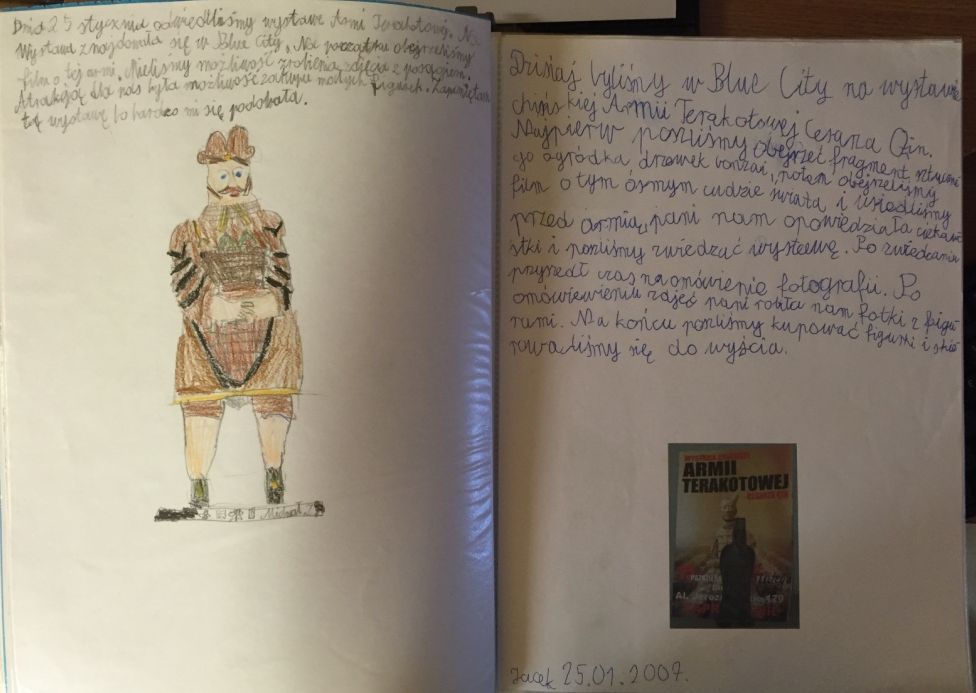 Dnia 25 stycznia odwiedziliśmy wystawę Armi Terakotowej. Na
Wystawa znajdowała się w Blue City. Na początku obejrzeliśmy
film o tej armi. Mieliśmy możliwość zrobienia zdjęcia z posągiem.
Atrakcją dla nas była możliwość zakupu małych figurek. Zapamiętam
tę wystawę bo bardzo mi się podobała.
Michał Z
Dzisiaj byliśmy w Blue City na wystawie
chińskiej Armii Terakotowej Cesarza Qin.
Najpierw poszliśmy obejrzeć fragment sztuczne
go ogródka drzewek bonzai, potem obejrzeliśmy
film o tym ósmym cudzie świata i usiedliśmy
przed armią, pani nam opowiedziała ciekawo
stki i poszliśmy zwiedzać wystawę. Po zwiedzaniu
przyszedł czas na omówienie fotografii. Po
omówiewieniu zdjęć pani robiła nam fotki z figu
rami. Na końcu poszliśmy kupować figurki i skie
rowaliśmy się do wyjścia.
ARMII
TERAKOTOWEJ
Jacek 25.01.2007.